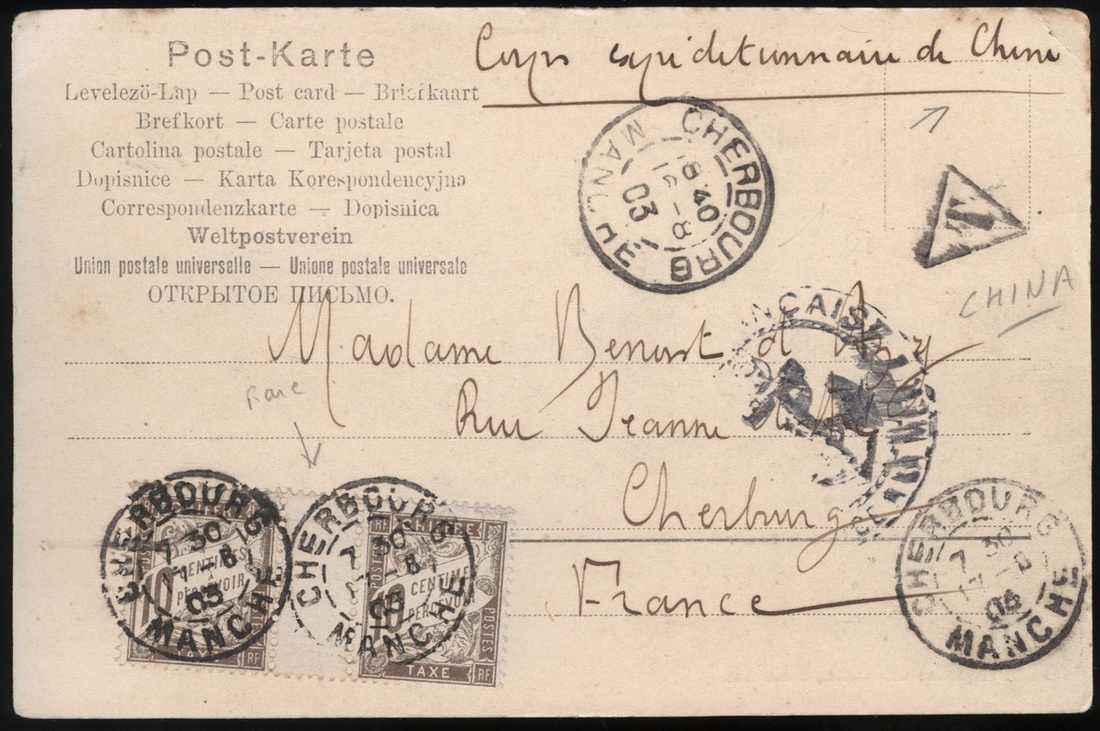 Corps expeditionnaire de Chine
Post-Karte
Levelezö-Lap — Post card — Briefkaart
Brefkort — Carte postale
Cartolina postale — Tarjeta postal
Dopisnice — Karta Korespondencyjna
Correspondenzkarte — Dopisnica
Weltpostverein
Union postale universelle — Unione postale universale
ОТКРЫТОЕ ПИСЬМО.
CHERBOURG
8 40
-8
03
MANCHE
T
CHINA
Madame Benoist d'Azy
Rue Jeanne d'Arc
Cherbourg
France
Rare
CHERBOURG
7 30
17 -8
03
MANCHE
10
CENTIMES
À
PERCEVOIR
TAXE
RF
CHERBOURG
7 30
-8
03
MANCHE
CHIFFRE
10
CENTIMES
PERCEVOIR
POSTES
TAXE
RF
CHERBOURG
7 30
17 -8
03
MANCHE